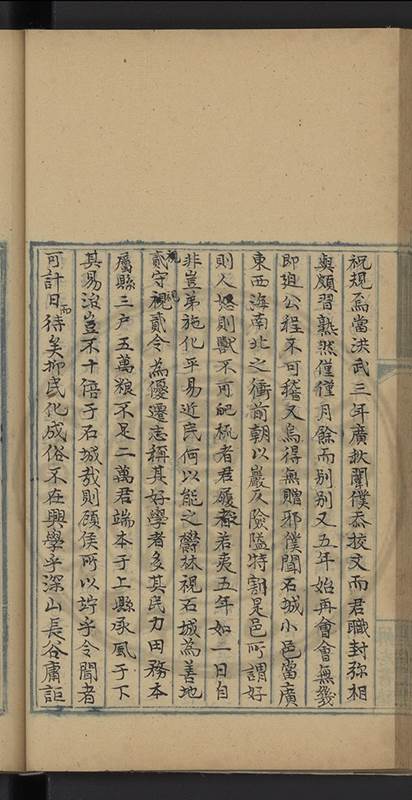 祝規焉當洪武三年廣秋闈僕忝校文而君職封弥相
與頗習熟然僅僅月餘而別別又五年始再會會無幾
即廻公程不可稽又烏得無贈邪僕聞石城小邑當廣
東西海南北之衝前朝以巖險隘特割是邑所謂好
則人怒則獸不可者君履若夷五年如一日自
非豈弟施化平易近民何以能之欝林視石城為善地
貳守視貳令為優遷志稱其好學者多其民力田務本
屬縣三户五萬粮不足二萬君端本于上縣承風于下
其易治豈不十倍于石城哉則頋侯所以竚乎令聞者
可計日而待矣抑民化成俗不在興學乎深山長谷庸詎